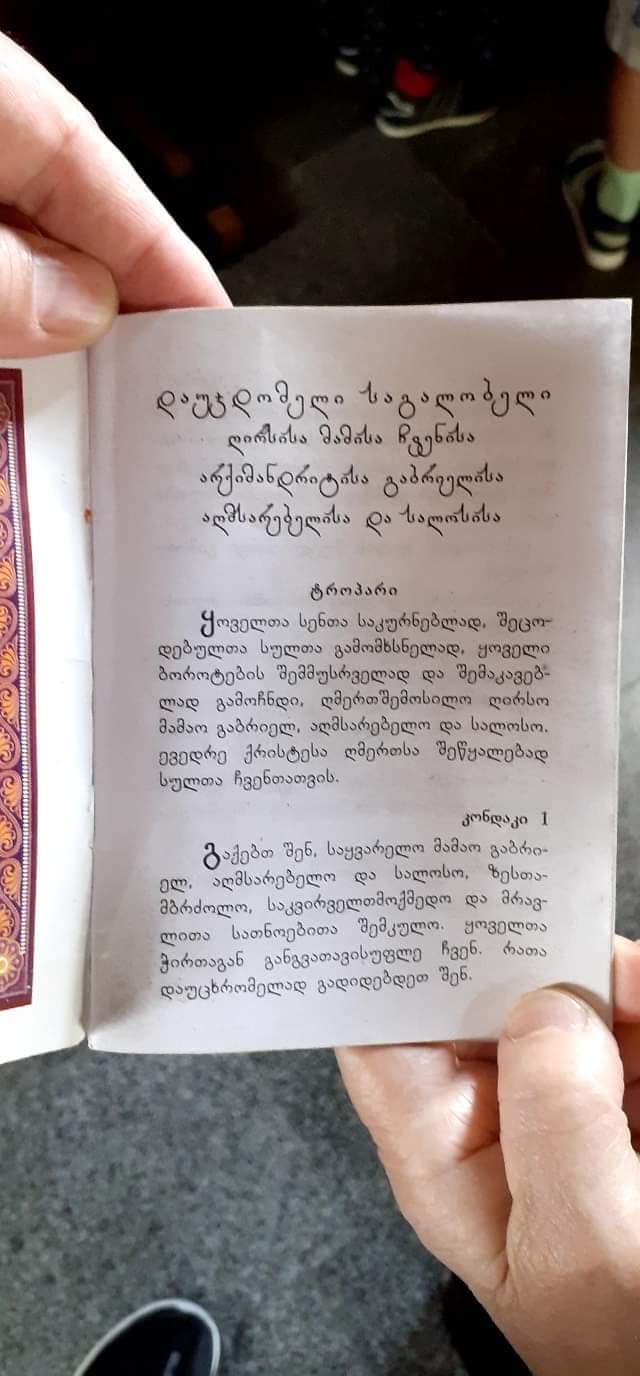 დაუჯდომელი საგალობელი
ღირსისა მამისა ჩვენისა
არქიმანდრიტისა გაბრიელისა
აღმსარებელისა და სალოსისა
ტროპარი
ყოველთა სენთა საკურნებლად, შეცო-
დებულთა სულთა გამომხსნელად, ყოველი
ბოროტების შემმუსრველად და შემაკავებ-
ლად გამოჩნდი, ღმერთშემოსილო ღირსო
მამაო გაბრიელ, აღმსარებელო და სალოსო.
ევედრე ქრისტესა ღმერთსა შეწყალებად
სულთა ჩვენთათვის.
კონდაკი 1
გაქებთ შენ, საყვარელო მამაო გაბრი-
ელ, აღმსარებელო და სალოსო, ზესთა-
მბრძოლო, საკვირველთმოქმედო და მრავ-
ლითა სათნოებითა შემკულო. ყოველთა
ჭირთაგან განგვათავისუფლე ჩვენ. რათა
დაუცხრომელად გადიდებდეთ შენ.